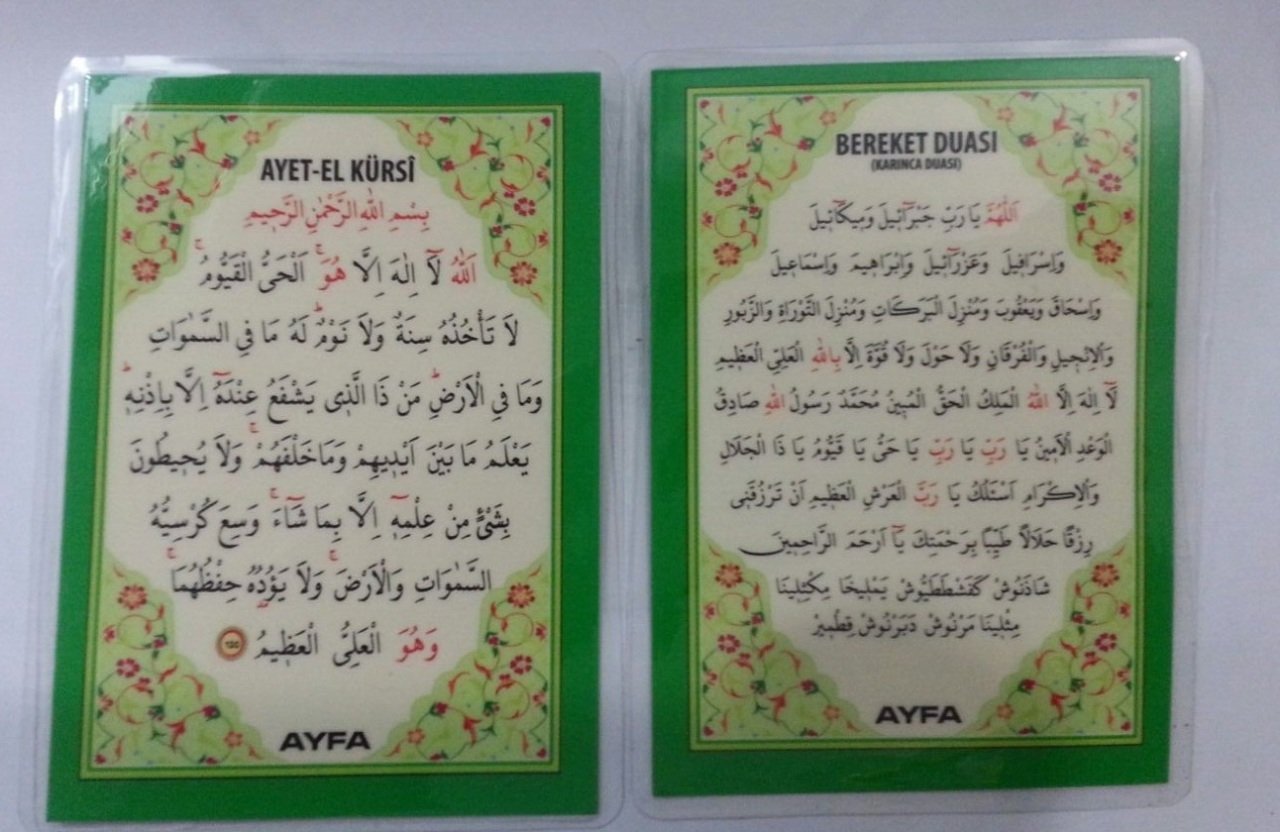 AYET-EL KÜRSÎ
بِسْمِ اللهِ الرَّحْمٰنِ الرَّحِيمِ
اَللهُ لَآ اِلٰهَ اِلَّا هُوَۚ اَلْحَىُّ الْقَيُّومُۚ
لَا تَأْخُذُهُ سِنَةٌ وَلَا نَوْمٌۜ لَهُ مَا فِى السَّمٰوَاتِ
وَمَا فِى الْاَرْضِۜ مَنْ ذَا الَّذِى يَشْفَعُ عِنْدَهُٓ اِلَّا بِاِذْنِهٖۜ
يَعْلَمُ مَا بَيْنَ اَيْدِيهِمْ وَمَا خَلْفَهُمْۚ وَلَا يُحِيطُونَ
بِشَىْءٍ مِنْ عِلْمِهٖٓ اِلَّا بِمَا شَآءَۚ وَسِعَ كُرْسِيُّهُ
السَّمٰوَاتِ وَالْاَرْضَۚ وَلَا يَؤُدُهُ حِفْظُهُمَاۚ
وَهُوَ الْعَلِىُّ الْعَظِيمُ
AYFA
BEREKET DUASI
(KARINCA DUASI)
اَللّٰهُمَّ يَا رَبِّ جَبْرَآئِيلَ وَمِيكَآئِيلَ
وَاِسْرَافِيلَ وَعَزْرَآئِيلَ وَاِبْرَاهِيمَ وَاِسْمَاعِيلَ
وَاِسْحَاقَ وَيَعْقُوبَ وَمُنْزِلَ الْبَرَكَاتِ وَمُنْزِلَ التَّوْرَاةِ وَالزَّبُورِ
وَالْاِنْجِيلِ وَالْفُرْقَانِ وَلَا حَوْلَ وَلَا قُوَّةَ اِلَّا بِاللهِ الْعَلِىِّ الْعَظِيمِ
لَآ اِلٰهَ اِلَّا اللهُ الْمَلِكُ الْحَقُّ الْمُبِينُ مُحَمَّدٌ رَسُولُ اللهِ صَادِقُ
الْوَعْدِ الْاَمِينُ يَا رَبِّ يَا رَبِّ يَا حَىُّ يَا قَيُّومُ يَا ذَا الْجَلَالِ
وَالْاِكْرَامِ اَسْئَلُكَ يَا رَبَّ الْعَرْشِ الْعَظِيمِ اَنْ تَرْزُقَنِى
رِزْقًا حَلَالًا طَيِّبًا بِرَحْمَتِكَ يَآ اَرْحَمَ الرَّاحِمِينَ
شَاذَنُوشْ كَفَشْطَطَيُّوشْ يَمْلِيخَا مِكْثِلِينَا
مِثْلِينَا مَرْنُوشْ دَبَرْنُوشْ قِطْمِيرْ
AYFA